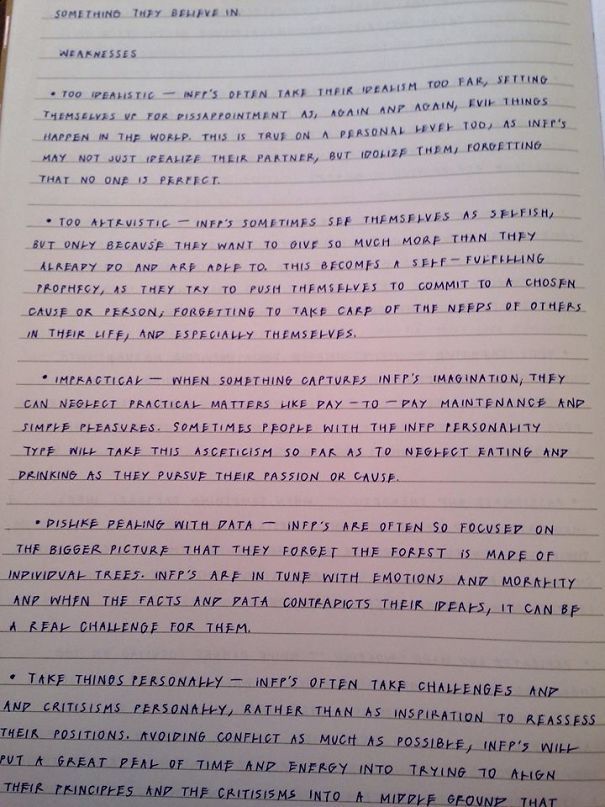 SOMETHING THEY BELIEVE IN.
WEAKNESSES
• TOO IDEALISTIC — INFP'S OFTEN TAKE THEIR IDEALISM TOO FAR, SETTING
THEMSELVES UP FOR DISSAPPOINTMENT AS, AGAIN AND AGAIN, EVIL THINGS
HAPPEN IN THE WORLD. THIS IS TRUE ON A PERSONAL LEVEL TOO, AS INFP'S
MAY NOT JUST IDEALIZE THEIR PARTNER, BUT IDOLIZE THEM, FORGETTING
THAT NO ONE IS PERFECT.
• TOO ALTRUISTIC — INFP'S SOMETIMES SEE THEMSELVES AS SELFISH,
BUT ONLY BECAUSE THEY WANT TO GIVE SO MUCH MORE THAN THEY
ALREADY DO AND ARE ABLE TO. THIS BECOMES A SELF-FULFILLING
PROPHECY, AS THEY TRY TO PUSH THEMSELVES TO COMMIT TO A CHOSEN
CAUSE OR PERSON, FORGETTING TO TAKE CARE OF THE NEEDS OF OTHERS
IN THEIR LIFE, AND ESPECIALLY THEMSELVES.
• IMPRACTICAL — WHEN SOMETHING CAPTURES INFP'S IMAGINATION, THEY
CAN NEGLECT PRACTICAL MATTERS LIKE DAY-TO-DAY MAINTENANCE AND
SIMPLE PLEASURES. SOMETIMES PEOPLE WITH THE INFP PERSONALITY
TYPE WILL TAKE THIS ASCETICISM SO FAR AS TO NEGLECT EATING AND
DRINKING AS THEY PURSUE THEIR PASSION OR CAUSE.
• DISLIKE DEALING WITH DATA — INFP'S ARE OFTEN SO FOCUSED ON
THE BIGGER PICTURE THAT THEY FORGET THE FOREST IS MADE OF
INDIVIDUAL TREES. INFP'S ARE IN TUNE WITH EMOTIONS AND MORALITY
AND WHEN THE FACTS AND DATA CONTRADICTS THEIR IDEALS, IT CAN BE
A REAL CHALLENGE FOR THEM.
• TAKE THINGS PERSONALLY — INFP'S OFTEN TAKE CHALLENGES AND
AND CRITISISMS PERSONALLY, RATHER THAN AS INSPIRATION TO REASSESS
THEIR POSITIONS. AVOIDING CONFLICT AS MUCH AS POSSIBLE, INFP'S WILL
PUT A GREAT DEAL OF TIME AND ENERGY INTO TRYING TO ALIGN
THEIR PRINCIPLES AND THE CRITISISMS INTO A MIDDLE GROUND THAT